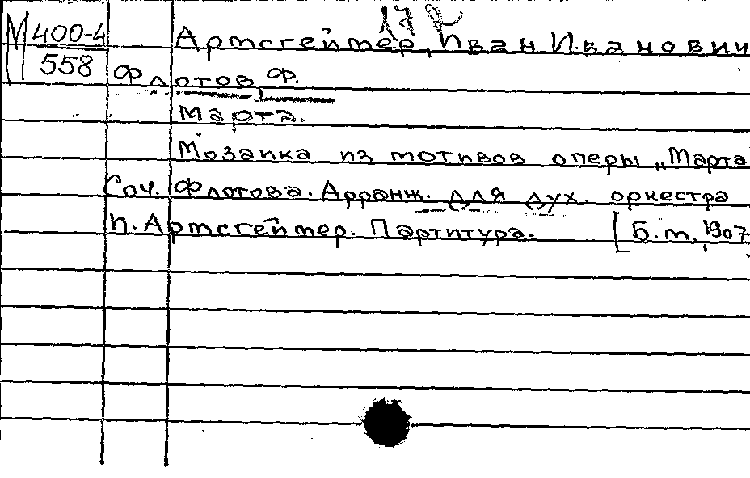 М 400-4
558
Артсгеймер, Иван Иванович
Флотов, Ф.
Марта.
Мозаика из мотивов оперы „Марта
Соч. Флотова. Арранж. для дух. оркестра
И. Артсгеймер. Партитура. [Б. м., 1907